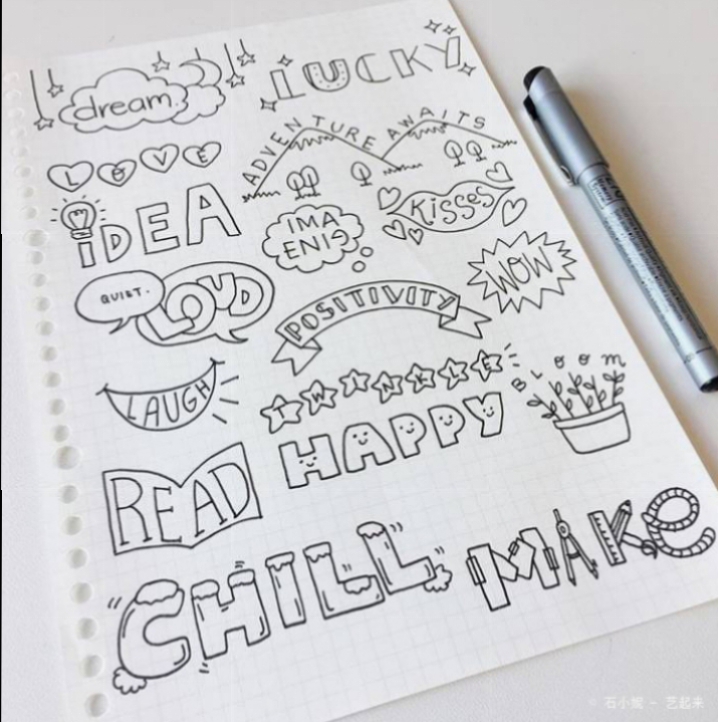 dream
LUCKY
ADVENTURE AWAITS
LOVE
IDEA
IMA
GINE
KiSSES
QUIET.
LOUD
WOW
POSITIVITY
LAUGH
TWINKLE
BLOOM
HAPPY
READ
CHILL
MAKe
石小妮 - 艺起来